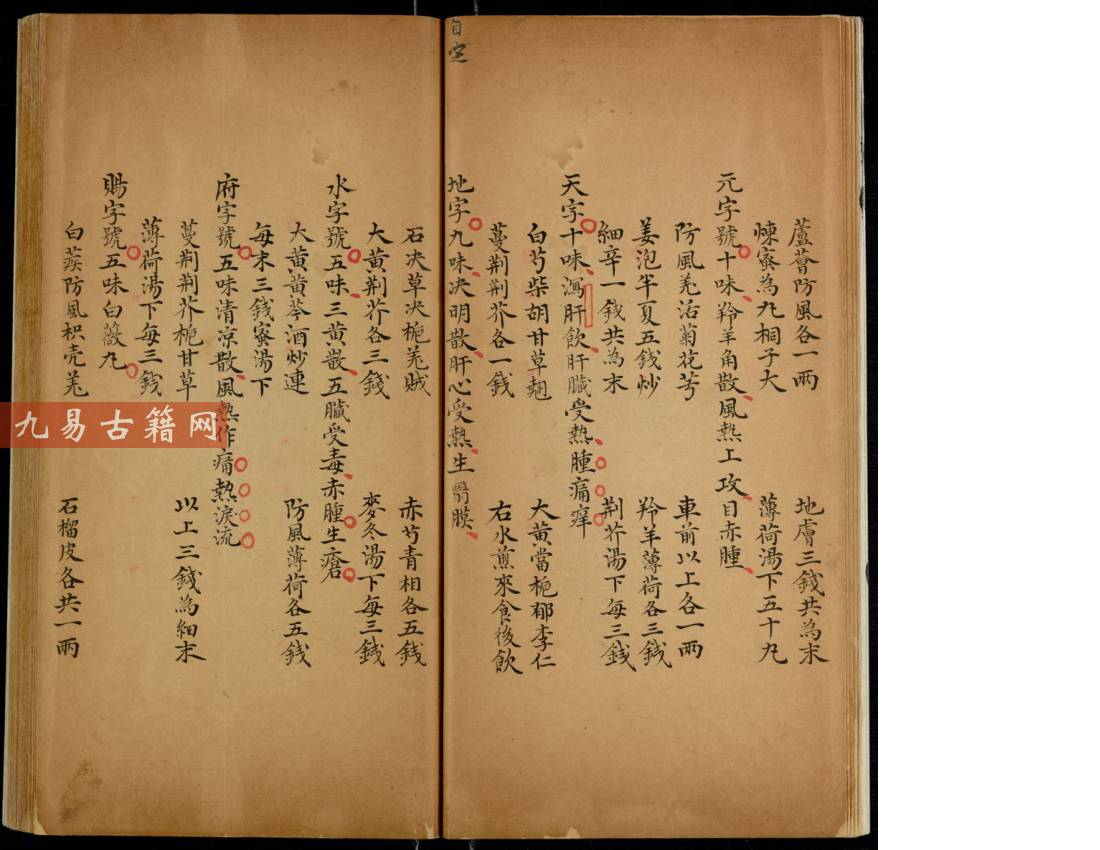 蘆薈防風各一兩　地膚三錢共為末
煉蜜為九桐子大　薄荷湯下五十九
元字號十味羚羊角散風熱上攻目赤腫
防風羌活菊花芎　車前以上各一兩
姜泡半夏五錢炒　羚羊薄荷各三錢
細辛一錢共為末　荆芥湯下每三錢
天字十味瀉肝飲肝臟受熱腫痛痒
白芍柴胡甘草翹　大黄當梔郁李仁
蔓荆荆芥各一錢　右水煎來食後飲
地字九味决明散肝心受熱生翳膜
自定
石决草决梔羌賊　赤芍青相各五錢
大黄荆芥各三錢　麥冬湯下每三錢
水字號五味三黄散五臟受毒赤腫生瘡
大黄黄芩酒炒連　防風薄荷各五錢
每末三錢蜜湯下
府字號五味清凉散風熱作痛熱淚流
蔓荆荆芥梔甘草　以上三錢為細末
薄荷湯下每三錢
賜字號五味白薇九
白蒺防風枳壳羌　石榴皮各共一兩
九易古籍网